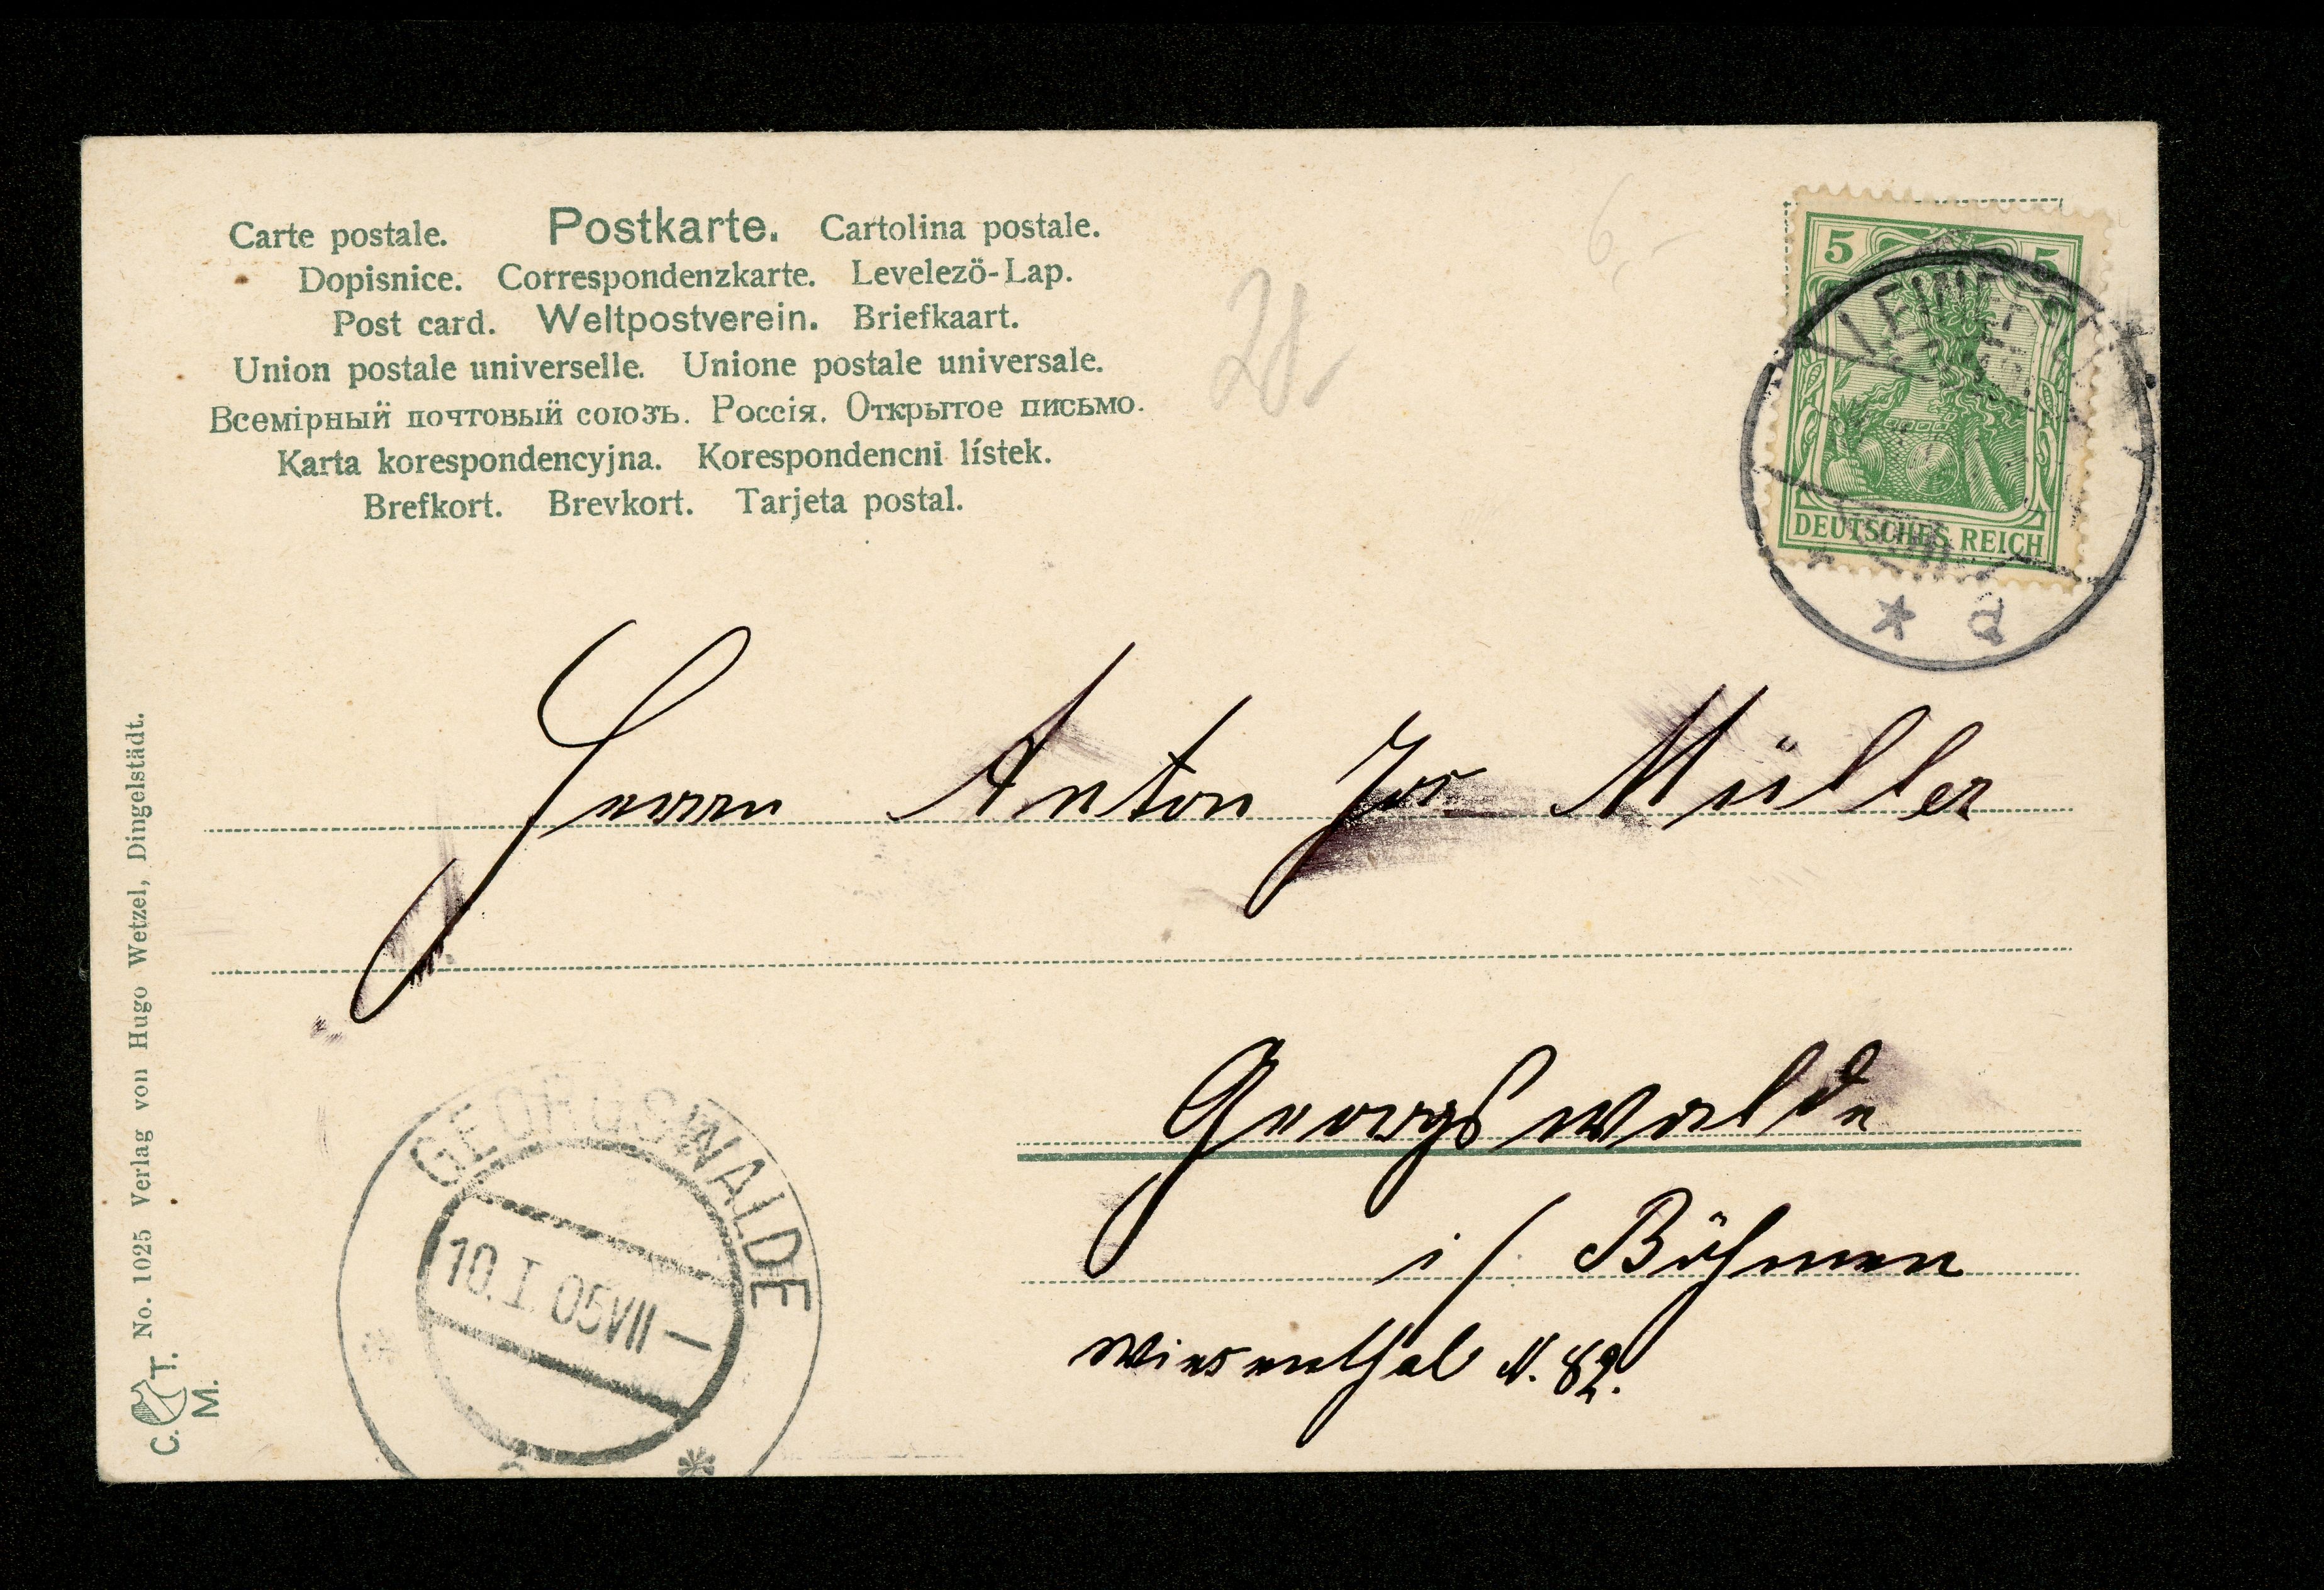 Carte postale. Postkarte. Cartolina postale.
Dopisnice. Correspondenzkarte. Levelező-Lap.
Post card. Weltpostverein. Briefkaart.
Union postale universelle. Unione postale universale.
Всемірный почтовый союзъ. Россія. Открытое письмо.
Karta korespondencyjna. Korespondencni lístek.
Brefkort. Brevkort. Tarjeta postal.
6,-
5 5
DEUTSCHES REICH
* d
Herrn Anton Jos. Müller
Georgswalde
i/ Böhmen
Wiesenthal N. 82.
GEORGSWALDE
10. I. 05 VII –
C. T. M. No. 1025 Verlag von Hugo Wetzel, Dingelstädt.